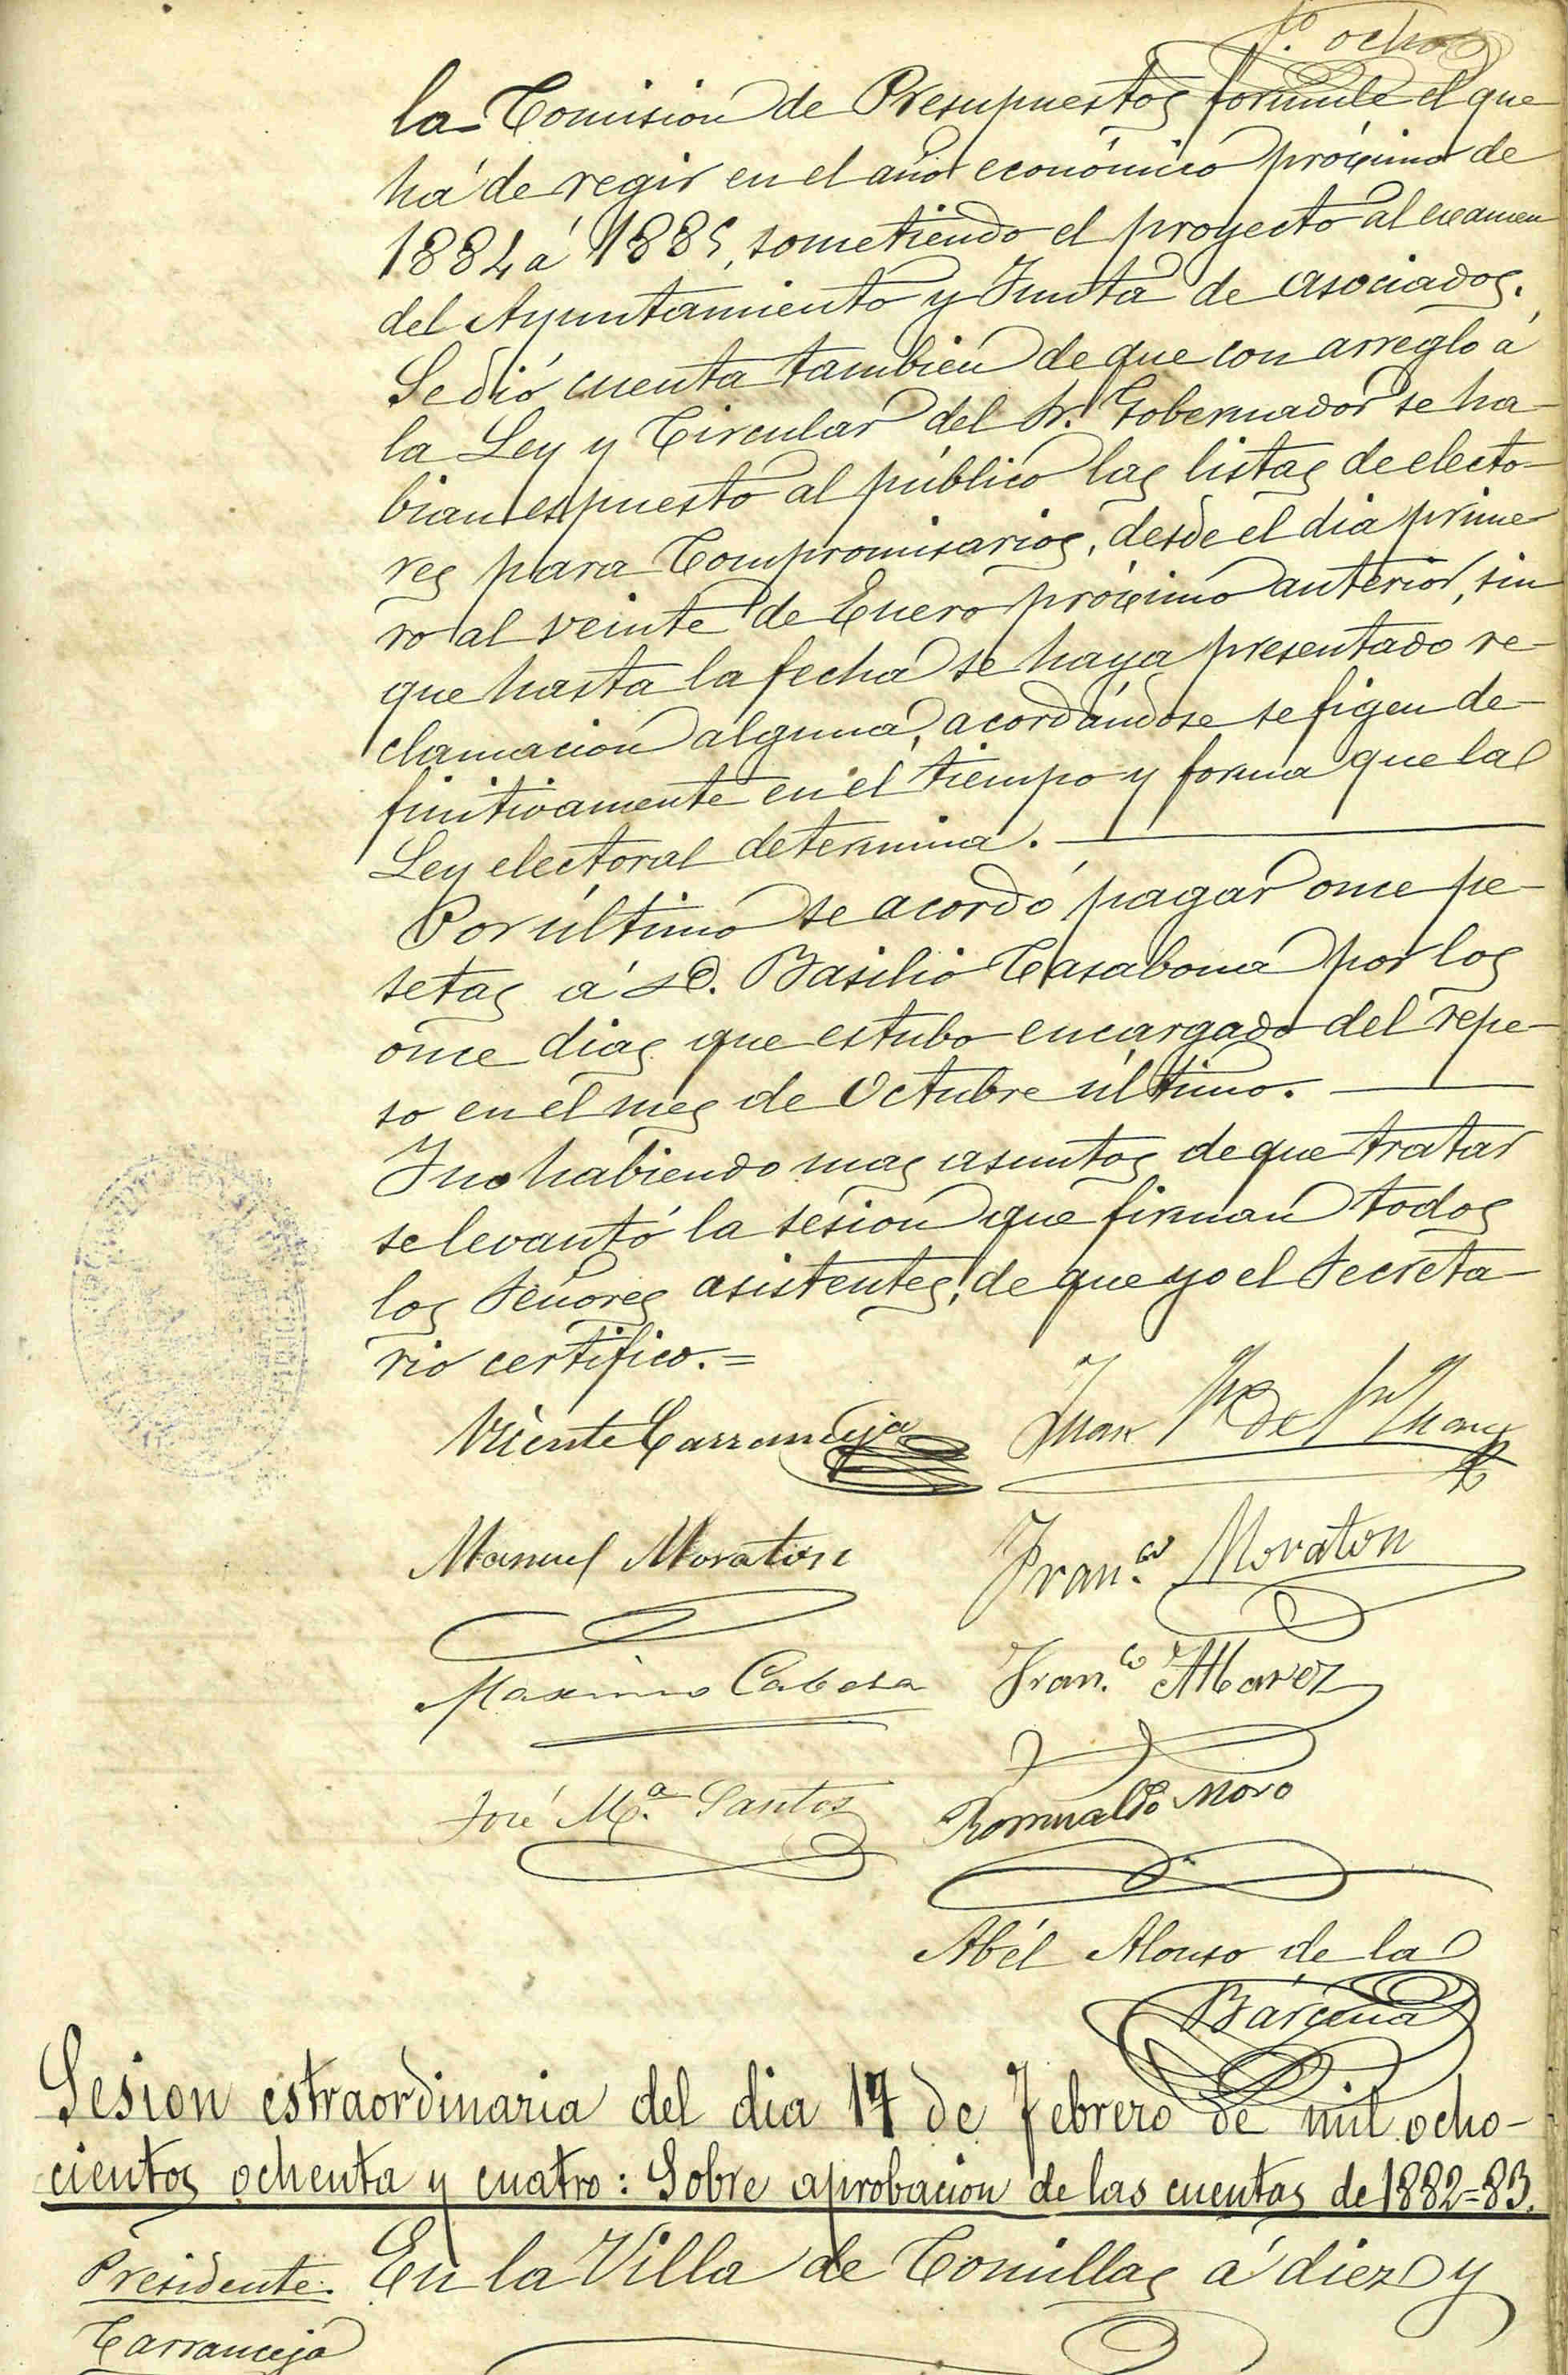 fº ocho
la Comision de Presupuestos formule el que
há de regir en el año económico próximo de
1884 á 1885, sometiendo el proyecto al examen
del Ayuntamiento y Junta de asociados.
Se dió cuenta tambien de que con arreglo á
la Ley y Circular del Sr. Gobernador se ha-
bian espuesto al público las listas de electo-
res para Compromisarios, desde el dia prime-
ro al veinte de Enero próximo anterior, sin
que hasta la fecha se haya presentado re-
clamacion alguna, acordándose se figen de-
finitivamente en el tiempo y forma que la
Ley electoral determina.
Por último se acordó pagar once pe-
setas á D. Basilio Casabona por los
once dias que estubo encargado del repe-
so en el mes de Octubre último.
Y no habiendo mas asuntos de que tratar
se levantó la sesion que firman todos
los Señores asistentes, de que yo el Secreta-
rio certifico.=
Vicente Carranceja
Juan
Manuel Moraton
Fran.co Moraton
Maximo Cabeza
Fran.co Alvarez
José M.ª Santos
Romualdo Moro
Abél Alonso de la
Bárcena
Sesion estraordinaria del dia 17 de Febrero de mil ocho-
cientos ochenta y cuatro: Sobre aprobacion de las cuentas de 1882=83.
Presidente
En la Villa de Comillas á diez y
Carranceja